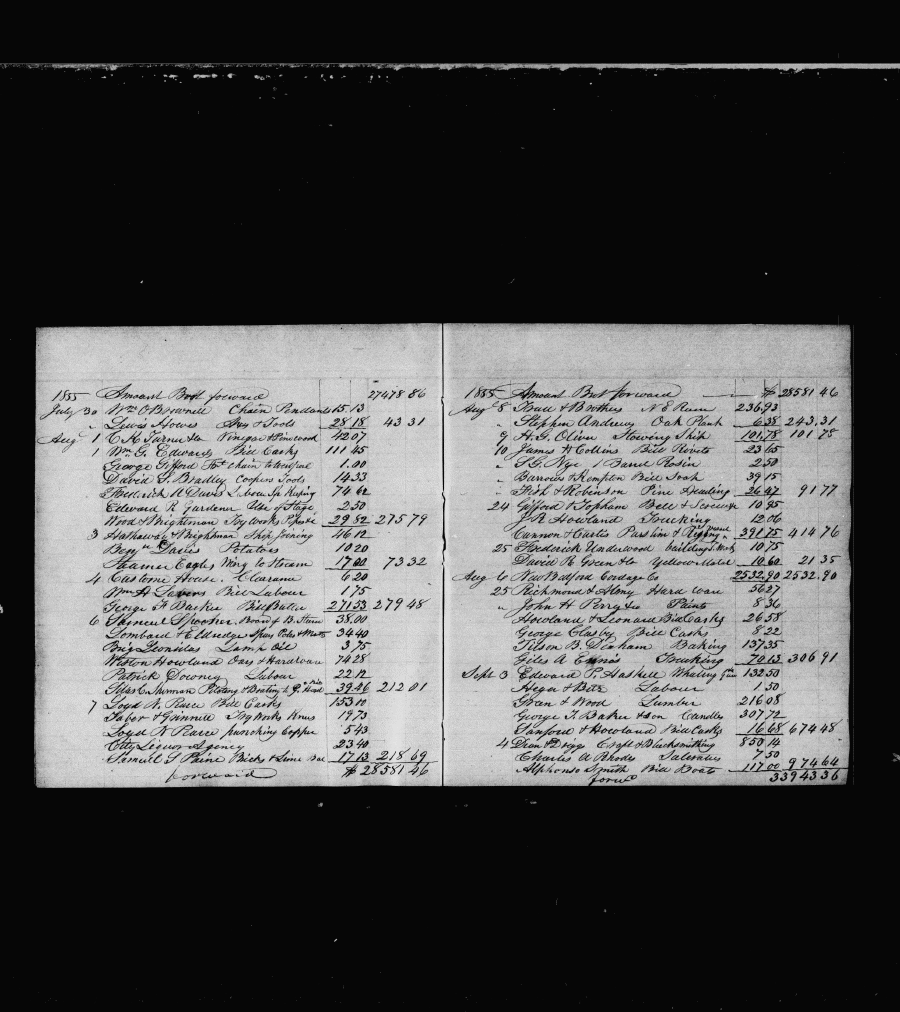 1855 Amount Brot forward 27478 86
July 30 Wm O Brownell Chain Pendants 15.13
" Lewis Howes & Tools 28 18 43 31
Aug 1 T. K. Turner &Co Vinegar & Pinewood 42 07
1 Wm G. Edwards Bill Casks 111 45
George Gifford Chain to 1.00
David S. Bradley Coopers Tools 14 33
Frederick N Davis Labour Sp Keeping 74 62
Edward R Gardener Use of Stage 2 50
Wood & Brightman Ivy Works Pipes &c 29 82 275 79
3 Hathaway & Brightman Ship Joining 46 12
Davis Potatoes 10 20
Steamer Eagles Wing to Stream 17 00 73 32
4 Custome House. Clearance 6 20
Wm A Bill Labour 1 75
George F Barker Bill Butter 271 53 279 48
6 Samuel Spooner Board of B. Steerer 38.00
Lombard & Eldredge Spars Poles & 34 40
Brig Leonidas Lamp Oil 3 75
Weston Howland Oars & Hardware 74 28
Patrick Downey Labour 22.12
Silas Alhurman Piloting & Boating 39.46 212 01
7 Loyd N. Pierce Bill Casks 153 10
Taber & Grinnell Ivy Works Knees 19 73
Loyd N Pearce punching Copper 5 43
City Liquor Agency 23 40
Samuel T Paine Bricks & Lime 17 13 218 69
forward $ 28581 46
1855 Amount Brt forward $ 28581 46
Aug 8 Hall & Brothers N E Rum 236.93
" Stephen Andrews Oak Plank 6.38 243.31
9 H. G. Oliver Stowing Ship 101,75 101 75
10 James H Collins Bill Rivets 23 65
" S. G. Nye 1 Barrel Rosin 2 50
" Barrows & Kempton Bill Soap 39 15
" Fish & Robinson Pine Heading 26 47 91 77
24 Gifford & Topham Bell & Screws &c 10 95
J. R. Howland Trucking 12.06
Cannon & Curtis Parslin & Rigging vessel 391 75 414 76
25 Frederick Underwood building 10.75
David R Green &Co Yellow Metal 10.60 21 35
Aug 6 New Bedford Cordage Co 2532.90 2532.90
25 Richmond & Almy Hard ware 56 27
" John H Perry &co Paints 8 36
Howland & Leonard Bill Casks 26 58
George Clasby Bill Casks 8 22
Tilson B. Denham Baking 137.35
Giles A Ennis Trucking 70.13 306 91
Sept. 3 Edward P. Haskell Whaling Gun 132 50
Labour 1 50
Swan & Wood Lumber 216 08
George T. Baker & son Candles 307 72
Sanford & Howland Bill Casks 16 68 674 48
4 Dean & Driggs Craft & Blacksmithing 850 14
Charles A Rhodes Saleratus 7 50
Alphonso Smith Bill Boats 117 00 974 64
forwd 33943 36